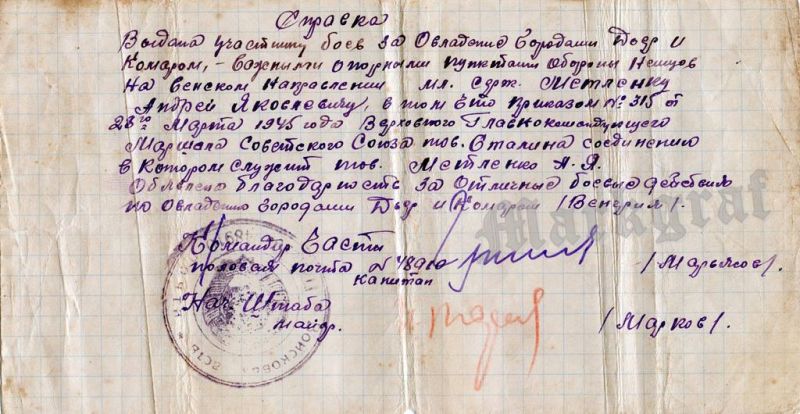 Справка
Выдана участнику боев за Овладение Городами Дьер и
Комаром, – Важными опорными пунктами Обороны Немцев
На Венском Направлении мл. серж. Метленку
Андрей Яковлевичу, в том Что приказом № 315 от
28го Марта 1945 года Верховного Главнокомандующего
Маршала Советского Союза тов. Сталина соединению
в Котором служит тов. Метленко А. Я.
Объявлена благодарность за Отличные боевые действия
по Овладению Городами Дьер и Комаром /Венгрия/.
Командир Части
полевая почта №
капитан
/Марьясов/.
Нач. Штаба
майор.
/Марков/.
Manağraf